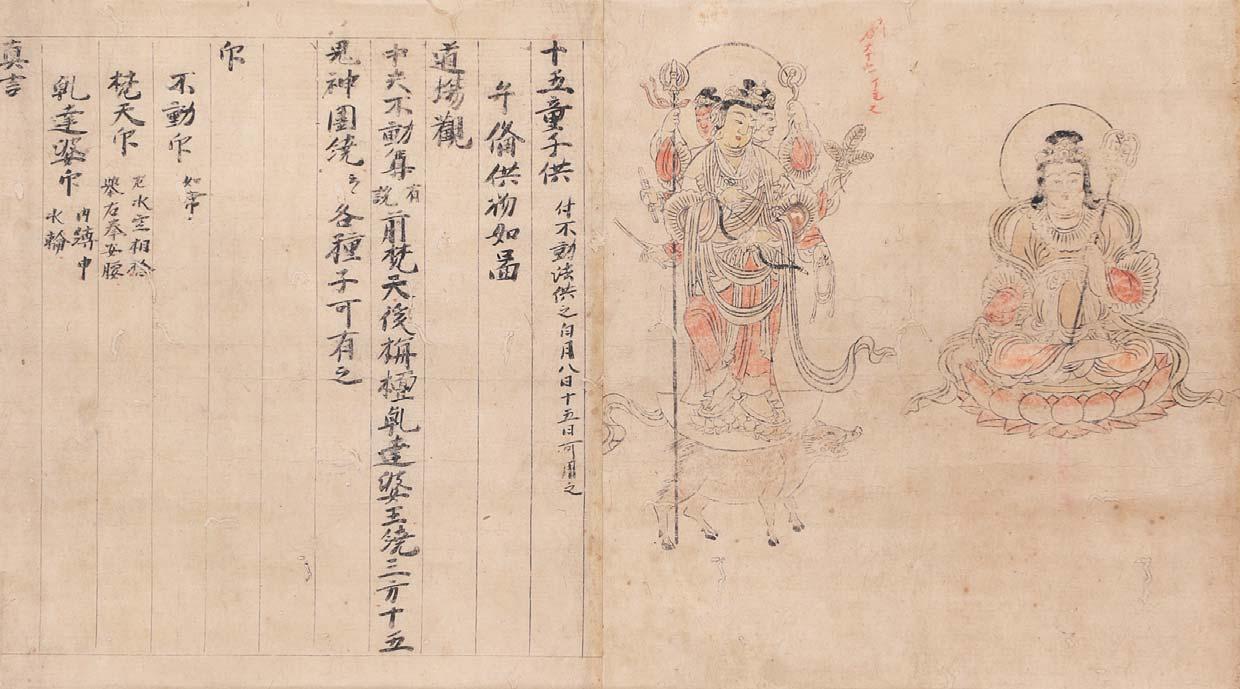 十五童子供 付不動法供之白月八日十五日可用之
弁備供物如啚
道場觀
中央不動尊 有説 前梵天後栴檀乹達婆王繞三方十五
鬼神圍繞之各種子可有之
印
不動印 如常
梵天印 水空相捻 右拳安腰
乹達婆印 内縛申 水輪
真言